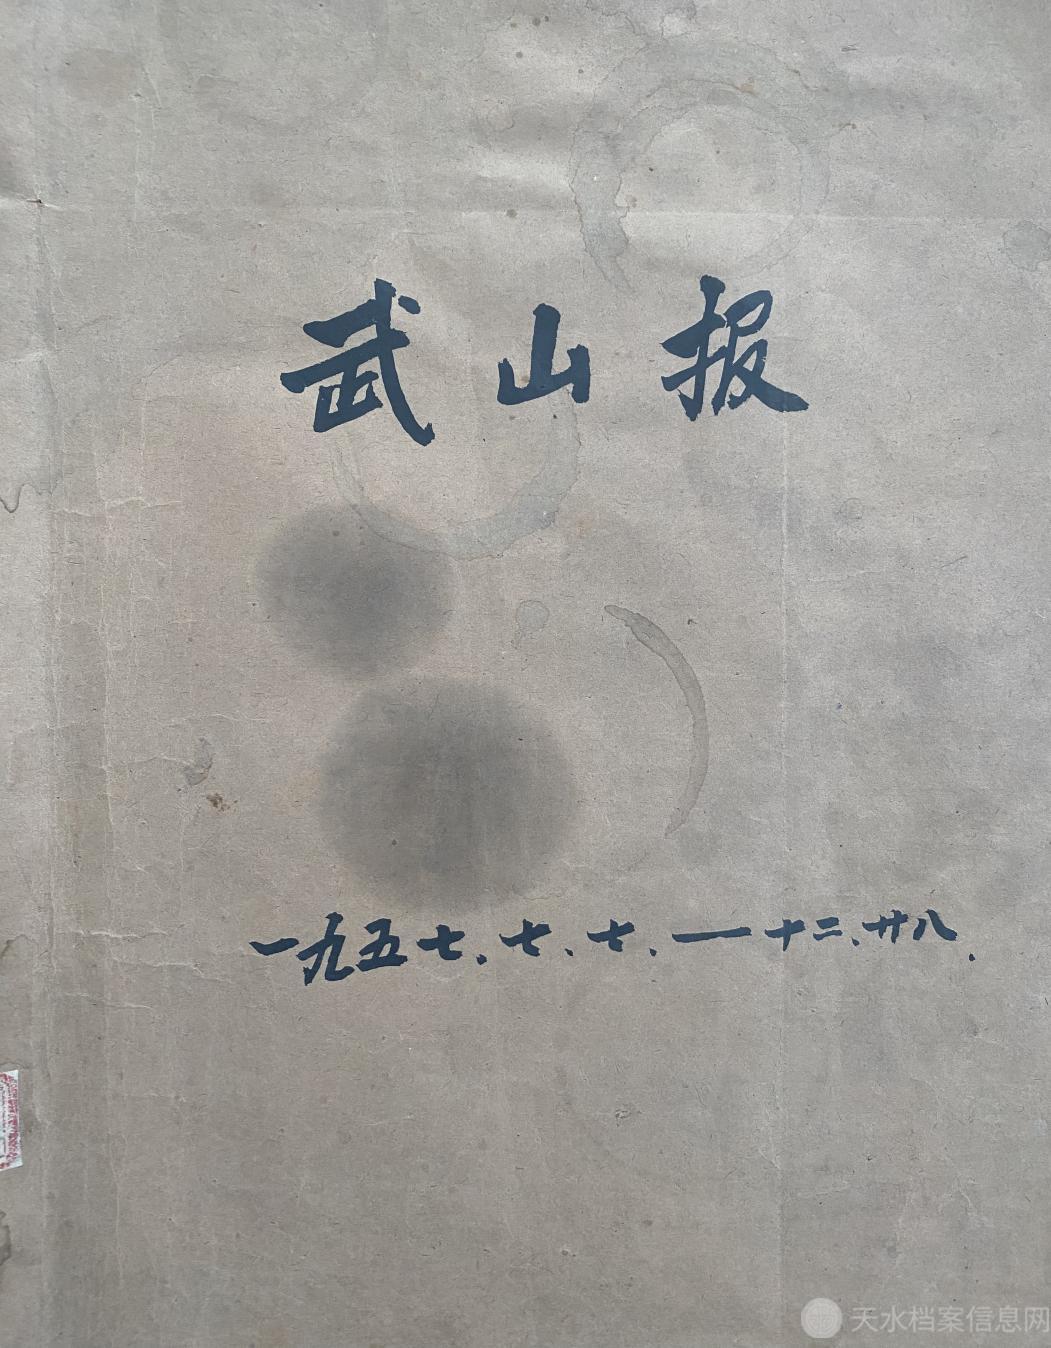 武山报
一九五七、七、七、—十二、廿八.
天水档案信息网